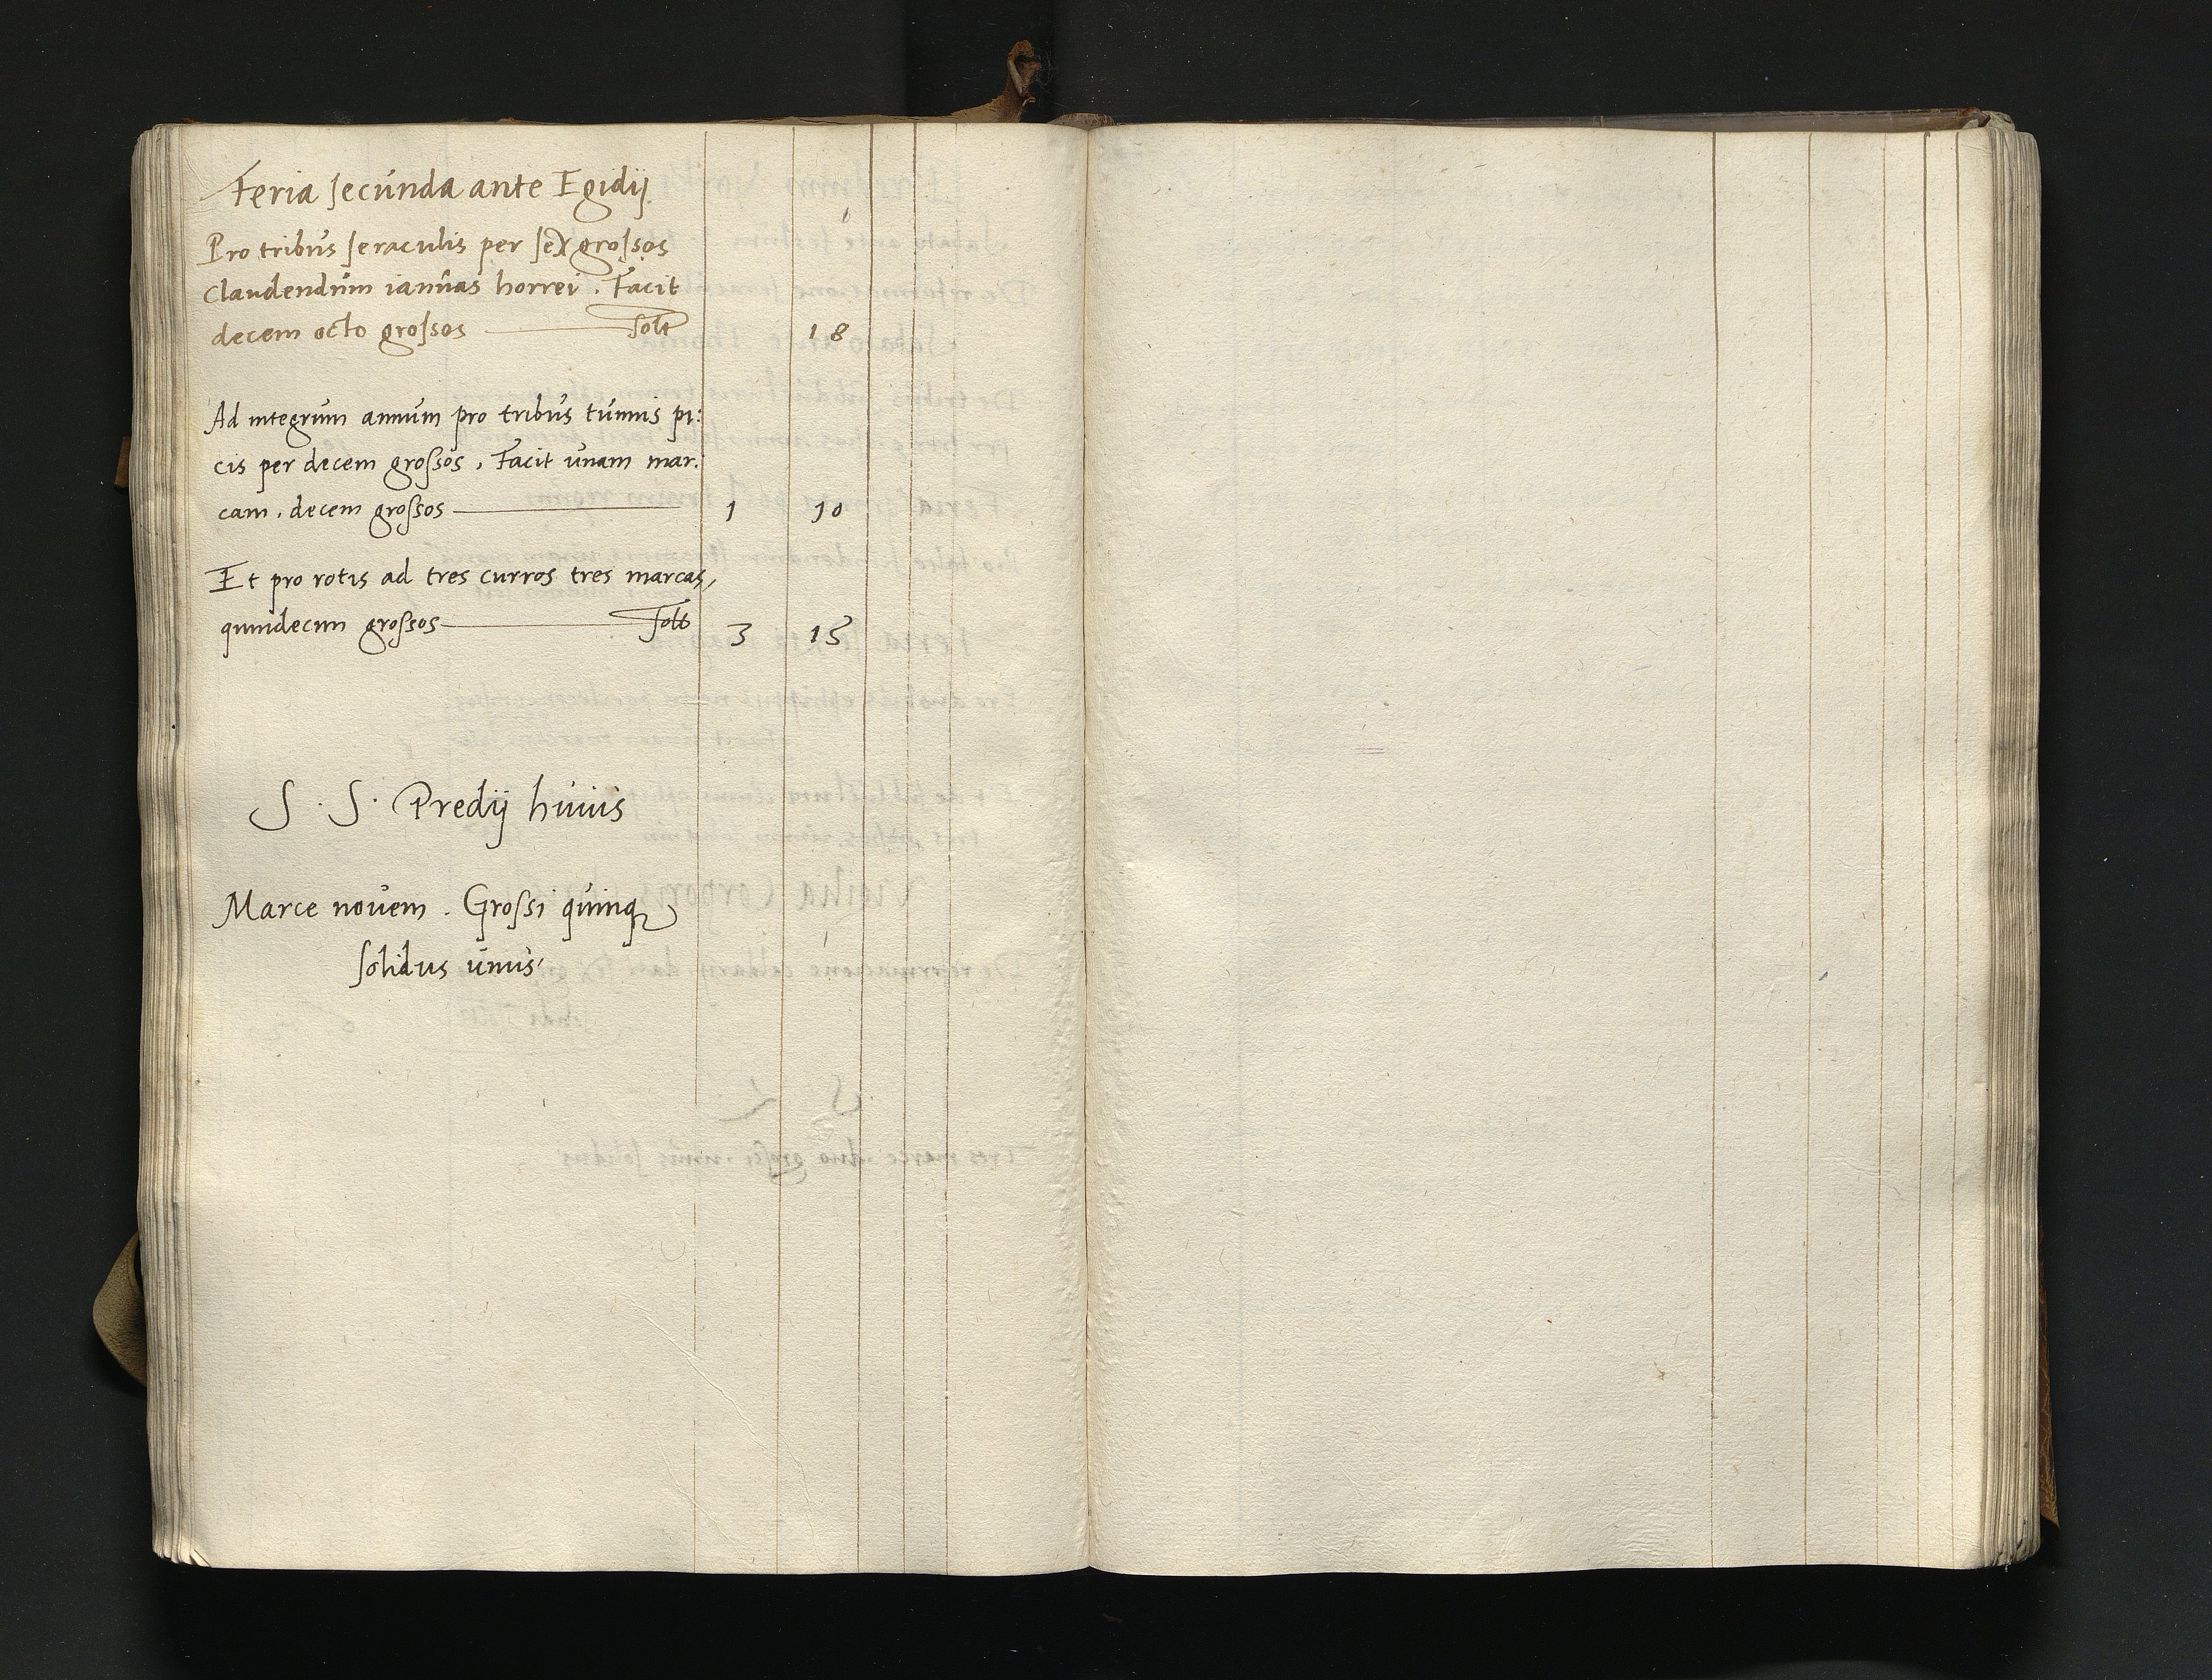 Feria secunda ante Egidij
Pro tribus seraculis per sex grossos
claudendum ianuas horrei . Facit
decem octo grossos Solt 18
Ad integrum annum pro tribus tunnis pi:
cis per decem grossos , Facit unam mar:
cam . decem grossos 1 10
Et pro rotis ad tres curros tres marcas,
quindecim grossos Solt 3 15
S . S . Predij huius
Marce novem . Grossi quinq
solidus unus